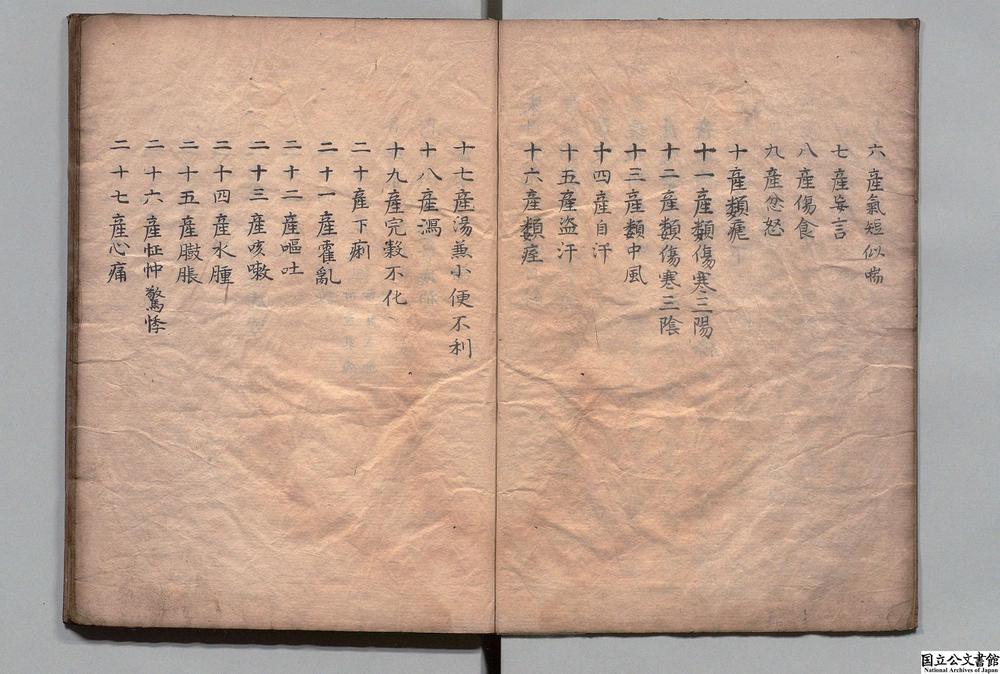 六產氣短似喘
七產妄言
八產傷食
九產忿怒
十產類瘧
十一產類傷寒三陽
十二產類傷寒三陰
十三產類中風
十四產自汗
十五產盗汗
十六產類痙
十七產湯兼小便不利
十八產瀉
十九產完穀不化
二十產下痢
二十一產霍亂
二十二產嘔吐
二十三產咳嗽
二十四產水腫
二十五產臌脹
二十六產怔忡驚悸
二十七產心痛
国立公文書館
National Archives of Japan